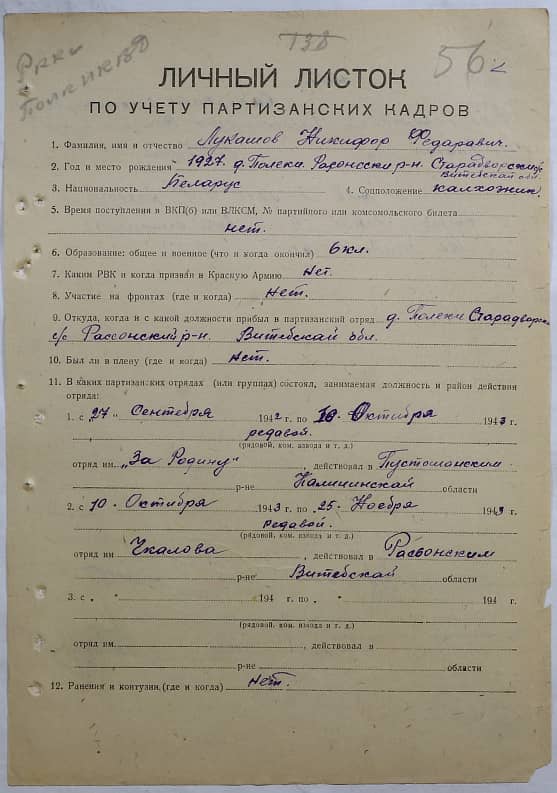 РККА
Полк НКВД
Т38
56
ЛИЧНЫЙ ЛИСТОК
ПО УЧЕТУ ПАРТИЗАНСКИХ КАДРОВ
1. Фамилия, имя и отчество Лукашов Никифор Федаравич.
2. Год и место рождения 1927. д. Полеки. Расонсски р-н. Старадворский
Витебской обл
3. Национальность Беларус 4. Соцположение калхожник.
5. Время поступления в ВКП(б) или ВЛКСМ, № партийного или комсомольского билета
нет.
6. Образование: общее и военное (что и когда окончил) 6 кл.
7. Каким РВК и когда призван в Красную Армию Нет.
8. Участие на фронтах (где и когда) Нет.
9. Откуда, когда и с какой должности прибыл в партизанский отряд д. Полеки Старадворск
с/с Рассонский р-н. Витебскай обл.
10. Был ли в плену (где и когда) Нет.
11. В каких партизанских отрядах (или группах) состоял, занимаемая должность и район действия
отряда:
1. с „27 „ Сентебря 1942 г. по 10 Октибря 1943 г.
редавой.
(рядовой, ком. взвода и т. д.)
отряд им. „За Родину" , действовал в Пустошанским
р-не Калининскай области
2. с 10. Октибря 1943 г. по 25. Ноебря 1943 г.
редавой.
(рядовой, ком. взвода и т. д.)
отряд им Чкалова , действовал в Расьонским
р-не Витебскай области
3. с „ " 194 г. по „ " 194 г.
(рядовой, ком. взвода и т. д.)
отряд им. , действовал в
р-не области
12. Ранения и контузии (где и когда) нет.